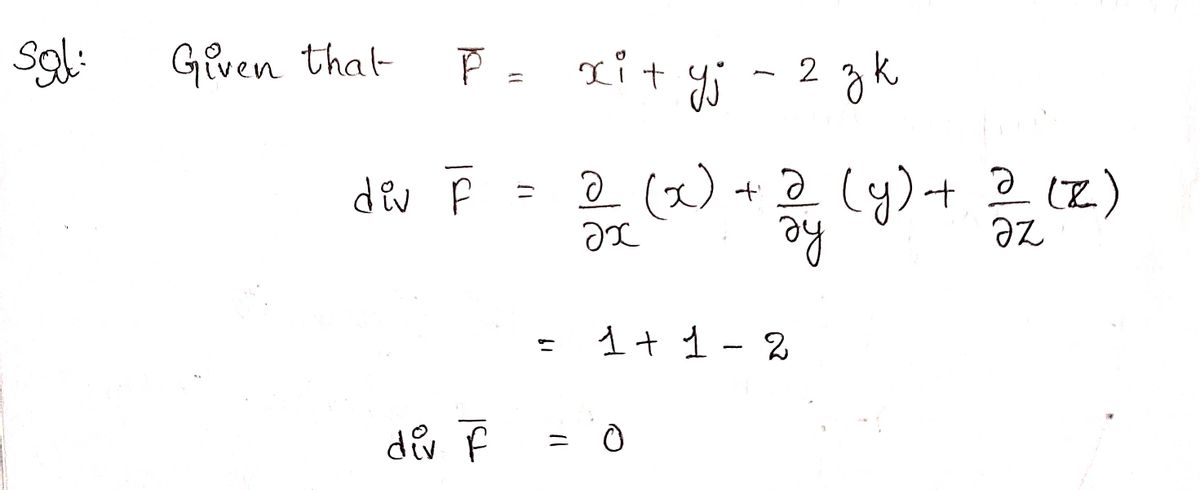 Sol: Given that F̅ = xi + yj - 2zk
div F̅ = ∂/∂x (x) + ∂/∂y (y) + ∂/∂z (z)
= 1 + 1 - 2
div F̅ = 0